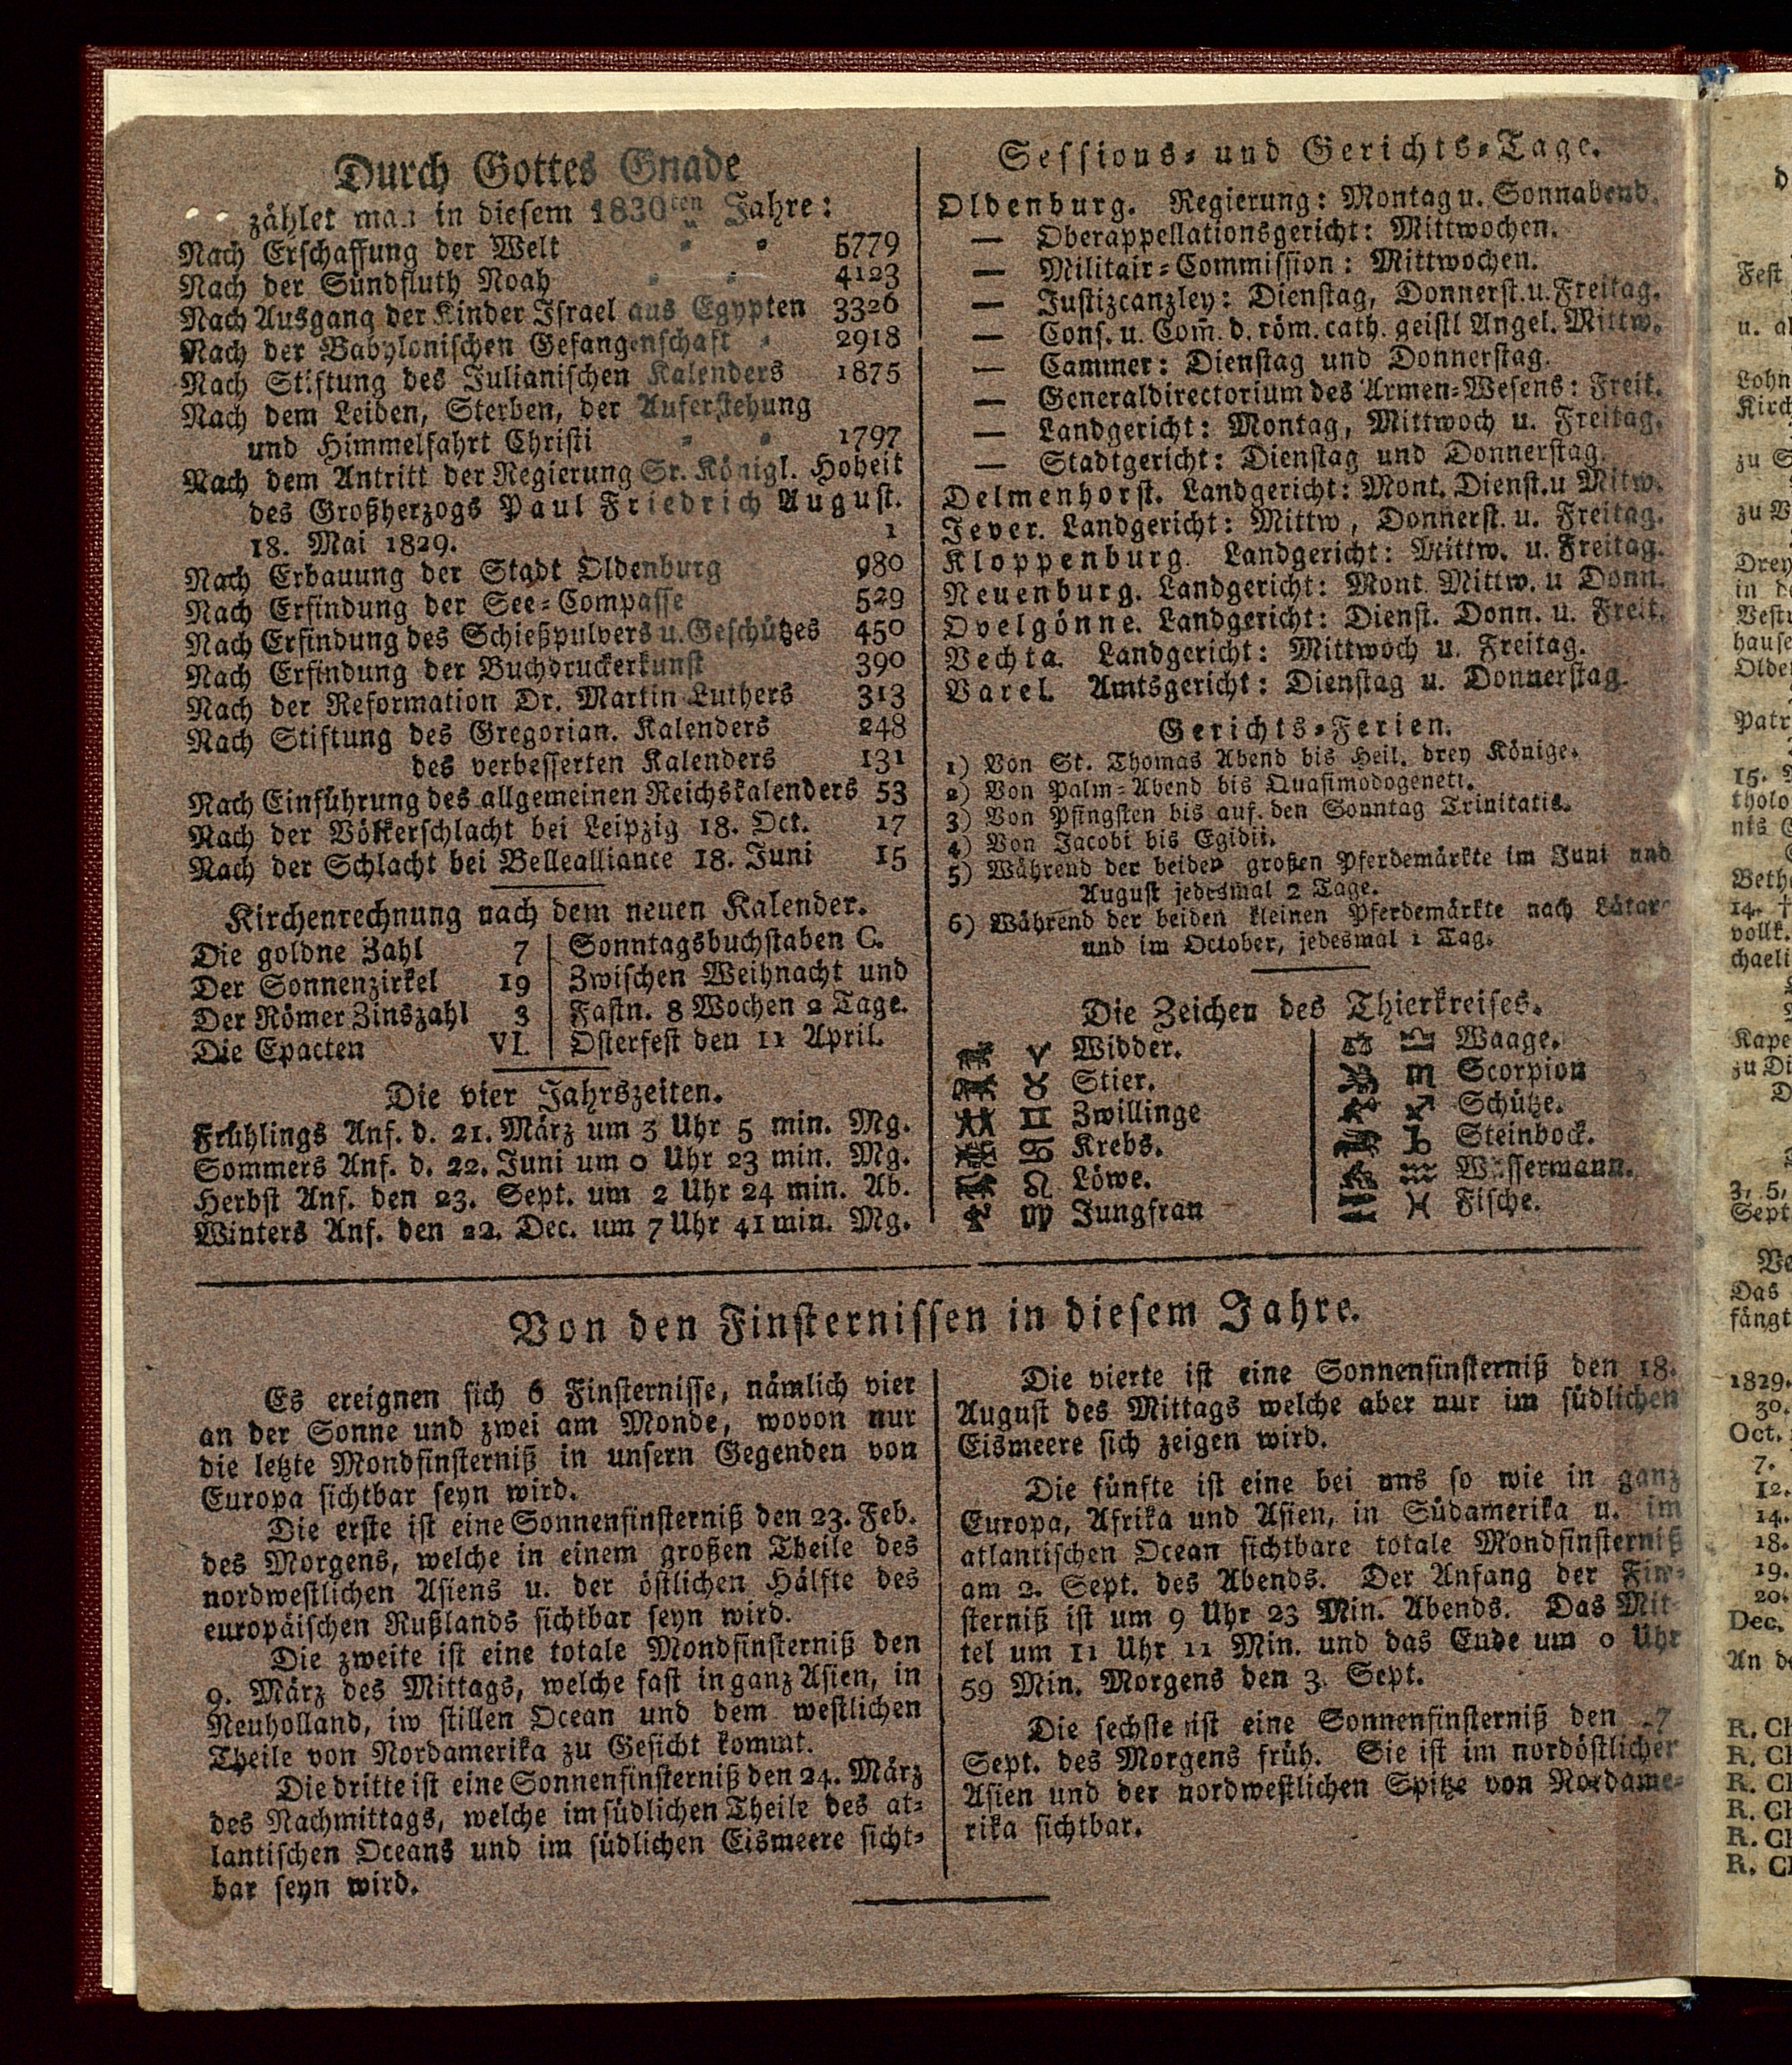 Durch Gottes Gnade
zählet man in diesem 1830ten Jahre:
Nach Erschaffung der Welt 5779
Nach der Sündfluth Noah 4123
Nach Ausgang der Kinder Israel aus Egypten 3326
Nach der Babylonischen Gefangenschaft 2918
Nach Stiftung des Julianischen Kalenders 1875
Nach dem Leiden, Sterben, der Auferstehung
und Himmelfahrt Christi 1797
Nach dem Antritt der Regierung Sr. Königl. Hoheit
des Großherzogs Paul Friedrich August.
18. Mai 1829. 1
Nach Erbauung der Stadt Oldenburg 980
Nach Erfindung der See-Compasse 529
Nach Erfindung des Schießpulvers u. Geschützes 450
Nach Erfindung der Buchdruckerkunst 390
Nach der Reformation Dr. Martin Luthers 313
Nach Stiftung des Gregorian. Kalenders 248
des verbesserten Kalenders 131
Nach Einführung des allgemeinen Reichskalenders 53
Nach der Völkerschlacht bei Leipzig 18. Oct. 17
Nach der Schlacht bei Bellealliance 18. Juni 15
Kirchenrechnung nach dem neuen Kalender.
Die goldne Zahl 7
Der Sonnenzirkel 19
Der Römer Zinszahl 3
Die Epacten VI.
Sonntagsbuchstaben C.
Zwischen Weihnacht und
Fastn. 8 Wochen 2 Tage.
Osterfest den 11 April.
Die vier Jahrszeiten.
Frühlings Anf. d. 21. März um 3 Uhr 5 min. Mg.
Sommers Anf. d. 22. Juni um 0 Uhr 23 min. Mg.
Herbst Anf. den 23. Sept. um 2 Uhr 24 min. Ab.
Winters Anf. den 22. Dec. um 7 Uhr 41 min. Mg.
Sessions- und Gerichts-Tage.
Oldenburg. Regierung: Montag u. Sonnabend.
— Oberappellationsgericht: Mittwochen.
— Militair-Commission: Mittwochen.
— Justizcanzley: Dienstag, Donnerst. u. Freitag.
— Cons. u. Com̄. d. röm. cath. geistl Angel. Mittw.
— Cammer: Dienstag und Donnerstag.
— Generaldirectorium des Armen-Wesens: Freit.
— Landgericht: Montag, Mittwoch u. Freitag.
— Stadtgericht: Dienstag und Donnerstag.
Delmenhorst. Landgericht: Mont. Dienst. u Mitw.
Jever. Landgericht: Mittw, Donnerst. u. Freitag.
Kloppenburg. Landgericht: Mittw. u. Freitag.
Neuenburg. Landgericht: Mont Mittw. u Donn.
Ovelgönne. Landgericht: Dienst. Donn. u. Freit.
Vechta. Landgericht: Mittwoch u. Freitag.
Varel. Amtsgericht: Dienstag u. Donnerstag.
Gerichts-Ferien.
1) Von St. Thomas Abend bis Heil. drey Könige.
2) Von Palm-Abend bis Quasimodogeneti.
3) Von Pfingsten bis auf den Sonntag Trinitatis.
4) Von Jacobi bis Egidii.
5) Während der beiden großen Pferdemärkte im Juni und
August jedesmal 2 Tage.
6) Während der beiden kleinen Pferdemärkte nach Lätare
und im October, jedesmal 1 Tag.
Die Zeichen des Thierkreises.
♈ Widder.
♉ Stier.
♊ Zwillinge
♋ Krebs.
♌ Löwe.
♍ Jungfrau
♎ Waage.
♏ Scorpion
♐ Schütze.
♑ Steinbock.
♒ Wassermann.
♓ Fische.
Von den Finsternissen in diesem Jahre.
Es ereignen sich 6 Finsternisse, nämlich vier
an der Sonne und zwei am Monde, wovon nur
die letzte Mondfinsterniß in unsern Gegenden von
Europa sichtbar seyn wird.
Die erste ist eine Sonnenfinsterniß den 23. Feb.
des Morgens, welche in einem großen Theile des
nordwestlichen Asiens u. der östlichen Hälfte des
europäischen Rußlands sichtbar seyn wird.
Die zweite ist eine totale Mondfinsterniß den
9. März des Mittags, welche fast in ganz Asien, in
Neuholland, iw stillen Ocean und dem westlichen
Theile von Nordamerika zu Gesicht kommt.
Die dritte ist eine Sonnenfinsterniß den 24. März
des Nachmittags, welche im südlichen Theile des at-
lantischen Oceans und im südlichen Eismeere sicht-
bar seyn wird.
Die vierte ist eine Sonnenfinsterniß den 18.
August des Mittags welche aber nur im südlichen
Eismeere sich zeigen wird.
Die fünfte ist eine bei uns so wie in ganz
Europa, Afrika und Asien, in Südamerika u. im
atlantischen Ocean sichtbare totale Mondfinsterniß
am 2. Sept. des Abends. Der Anfang der Fin-
sterniß ist um 9 Uhr 23 Min. Abends. Das Mit-
tel um 11 Uhr 11 Min. und das Ende um 0 Uhr
59 Min. Morgens den 3. Sept.
Die sechste ist eine Sonnenfinsterniß den 17
Sept. des Morgens früh. Sie ist im nordöstlicher
Asien und der nordwestlichen Spitze von Nordame-
rika sichtbar.
Fest
u. al
Lohn
Kirch
zu S
zu V
Drey
in de
Vestr
hause
Olde
Patr
15.
tholo
nis
Beth
14. †
vollk.
chaeli
Kape
zu Di
D
3, 5,
Sept
Ve
Das
fängt
1829.
30.
Oct.
7.
12.
14.
18.
19.
20.
Dec.
An de
R. Ch
R. Ch
R. Ch
R. Ch
R. Ch
R. Ch